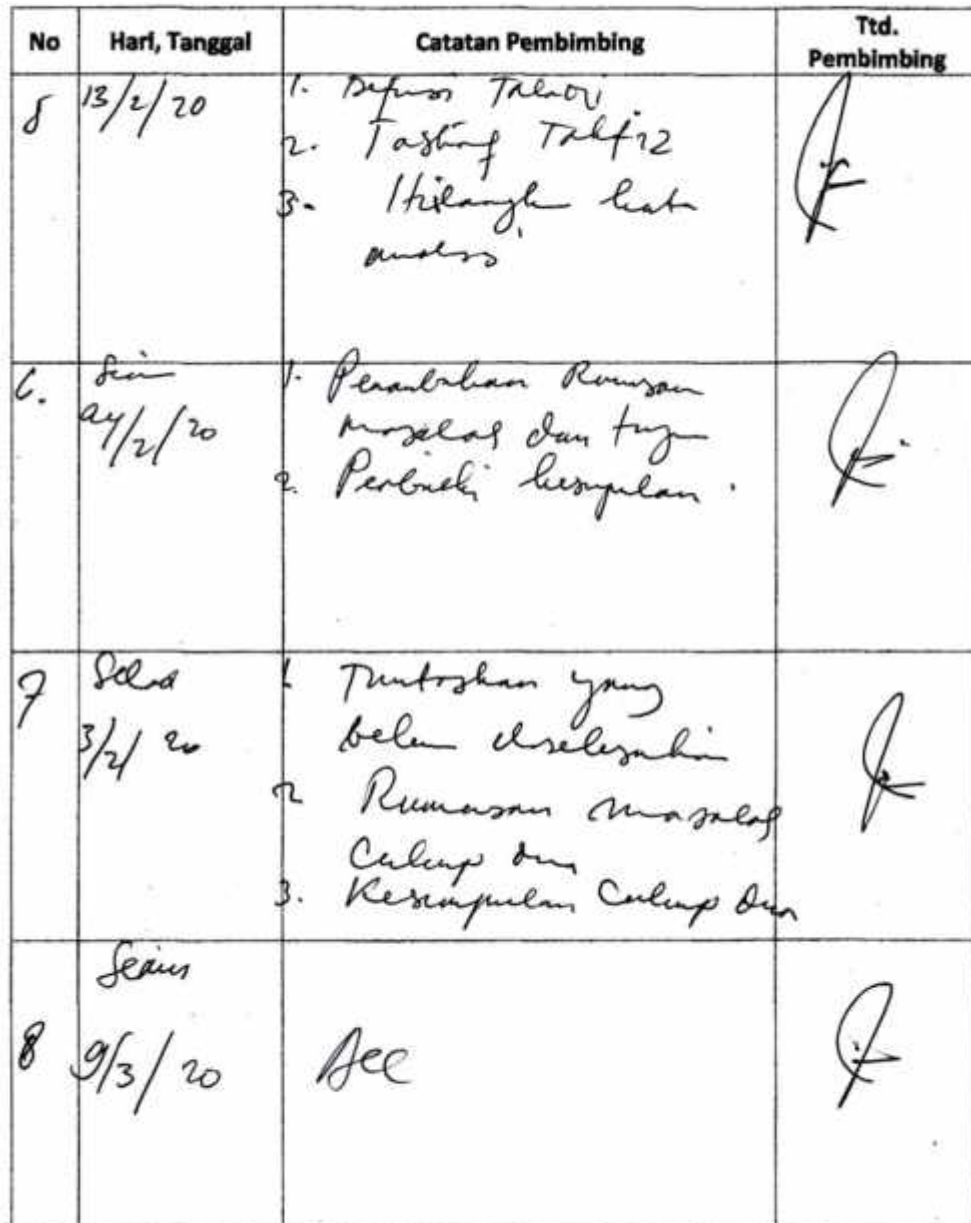 No Hari, Tanggal Catatan Pembimbing Ttd. Pembimbing
5 13/2/20 1.
2. Tahfiz
3. Hilangkan kata
analisis
6. Senin 1. Penambahan Rumusan
24/2/20 masalah dan tujuan
2. Perbaiki kesimpulan.
7 Selasa 1 Tuntaskan yang
3/2/20 belum diselesaikan
2 Rumusan masalah
Cukup dua
3. Kesimpulan Cukup dua
8 Senin
9/3/20 Acc